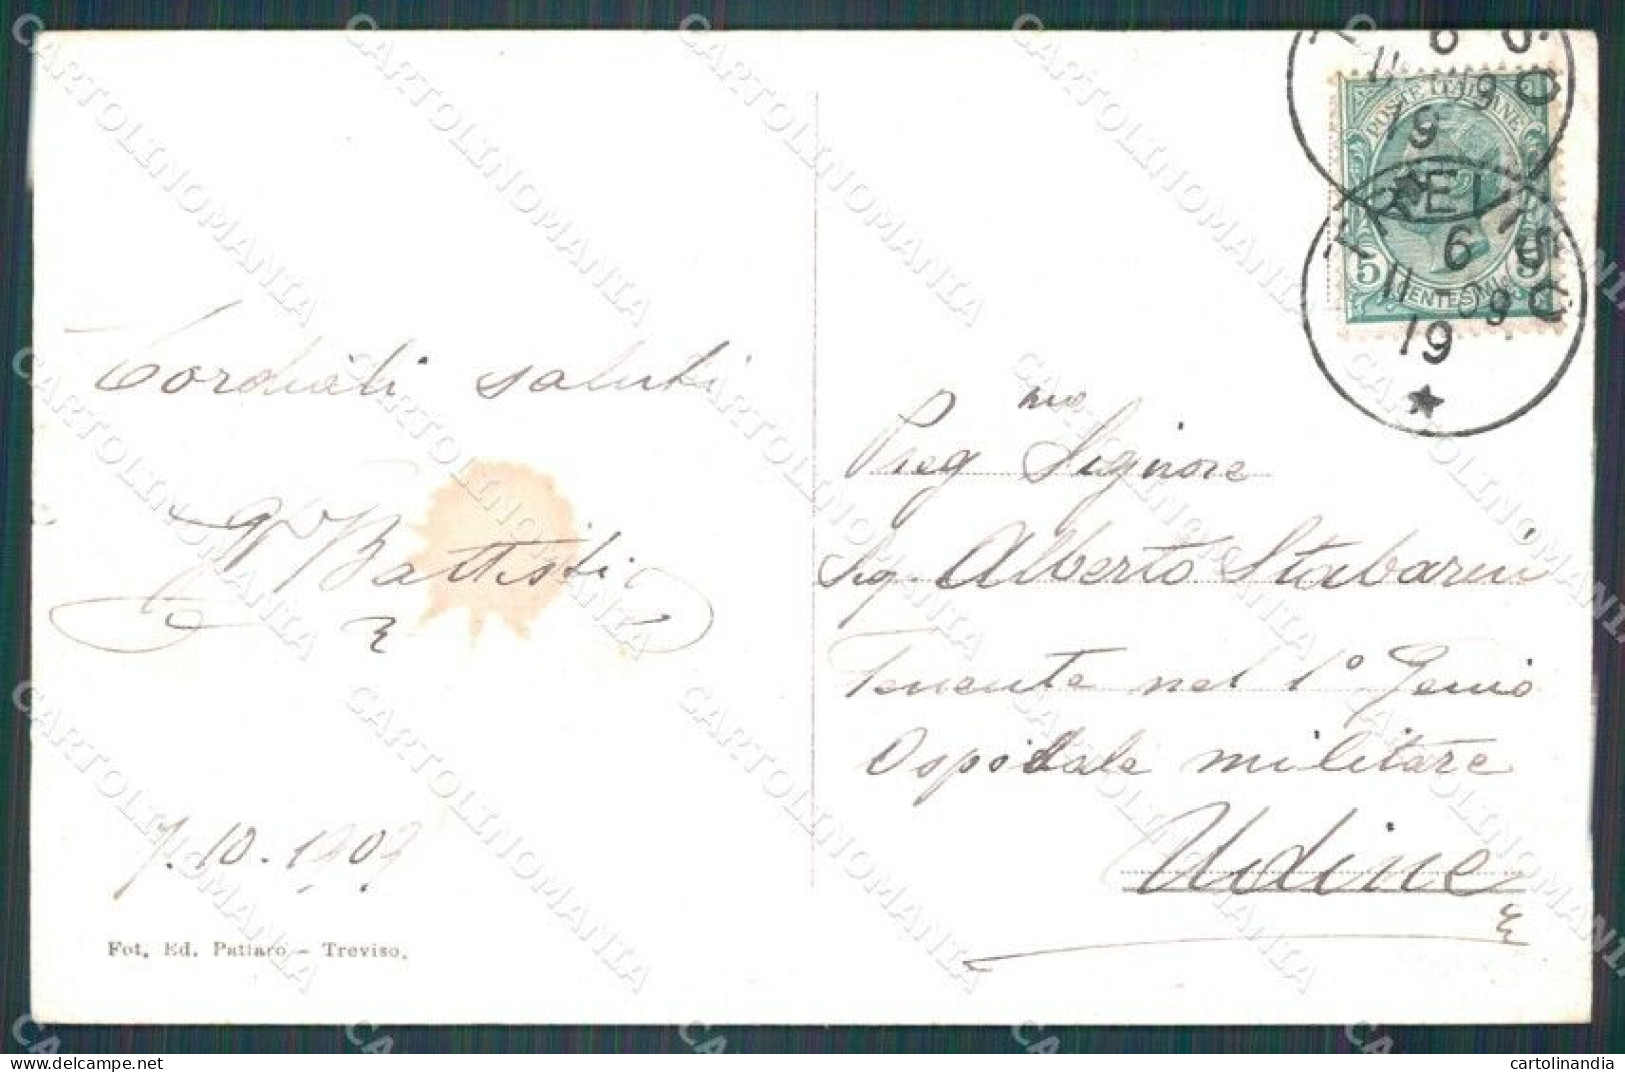 Cordiali saluti
Battisti
7.10.1909
Fot. Ed. Pattaro - Treviso.
Preg mo Signore
Sig. Alberto Stabarin
Tenente nel 1° Genio
Ospidale militare
Udine
POSTE ITALIANE
5 CENTESIMI 5
TREVISO
6 S
11 - 09
19
CARTOLINOMANIA
cartolinandia